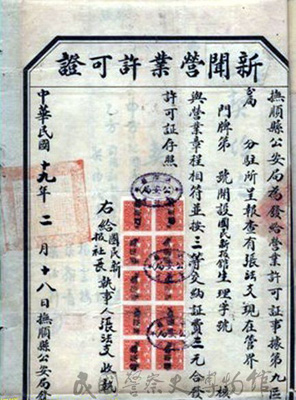 新聞營業許可證
撫順縣公安局為發給營業許可證事據第九區
分駐所呈報查有張法文現在管界
門牌第 號開設國民新報社生理字號 核
與營業章程相符並按三等交納証費三元合發
許可証存照
右給國民新報社長執事人張法文收執
中華民國十九年二月十八日撫順縣公安局發